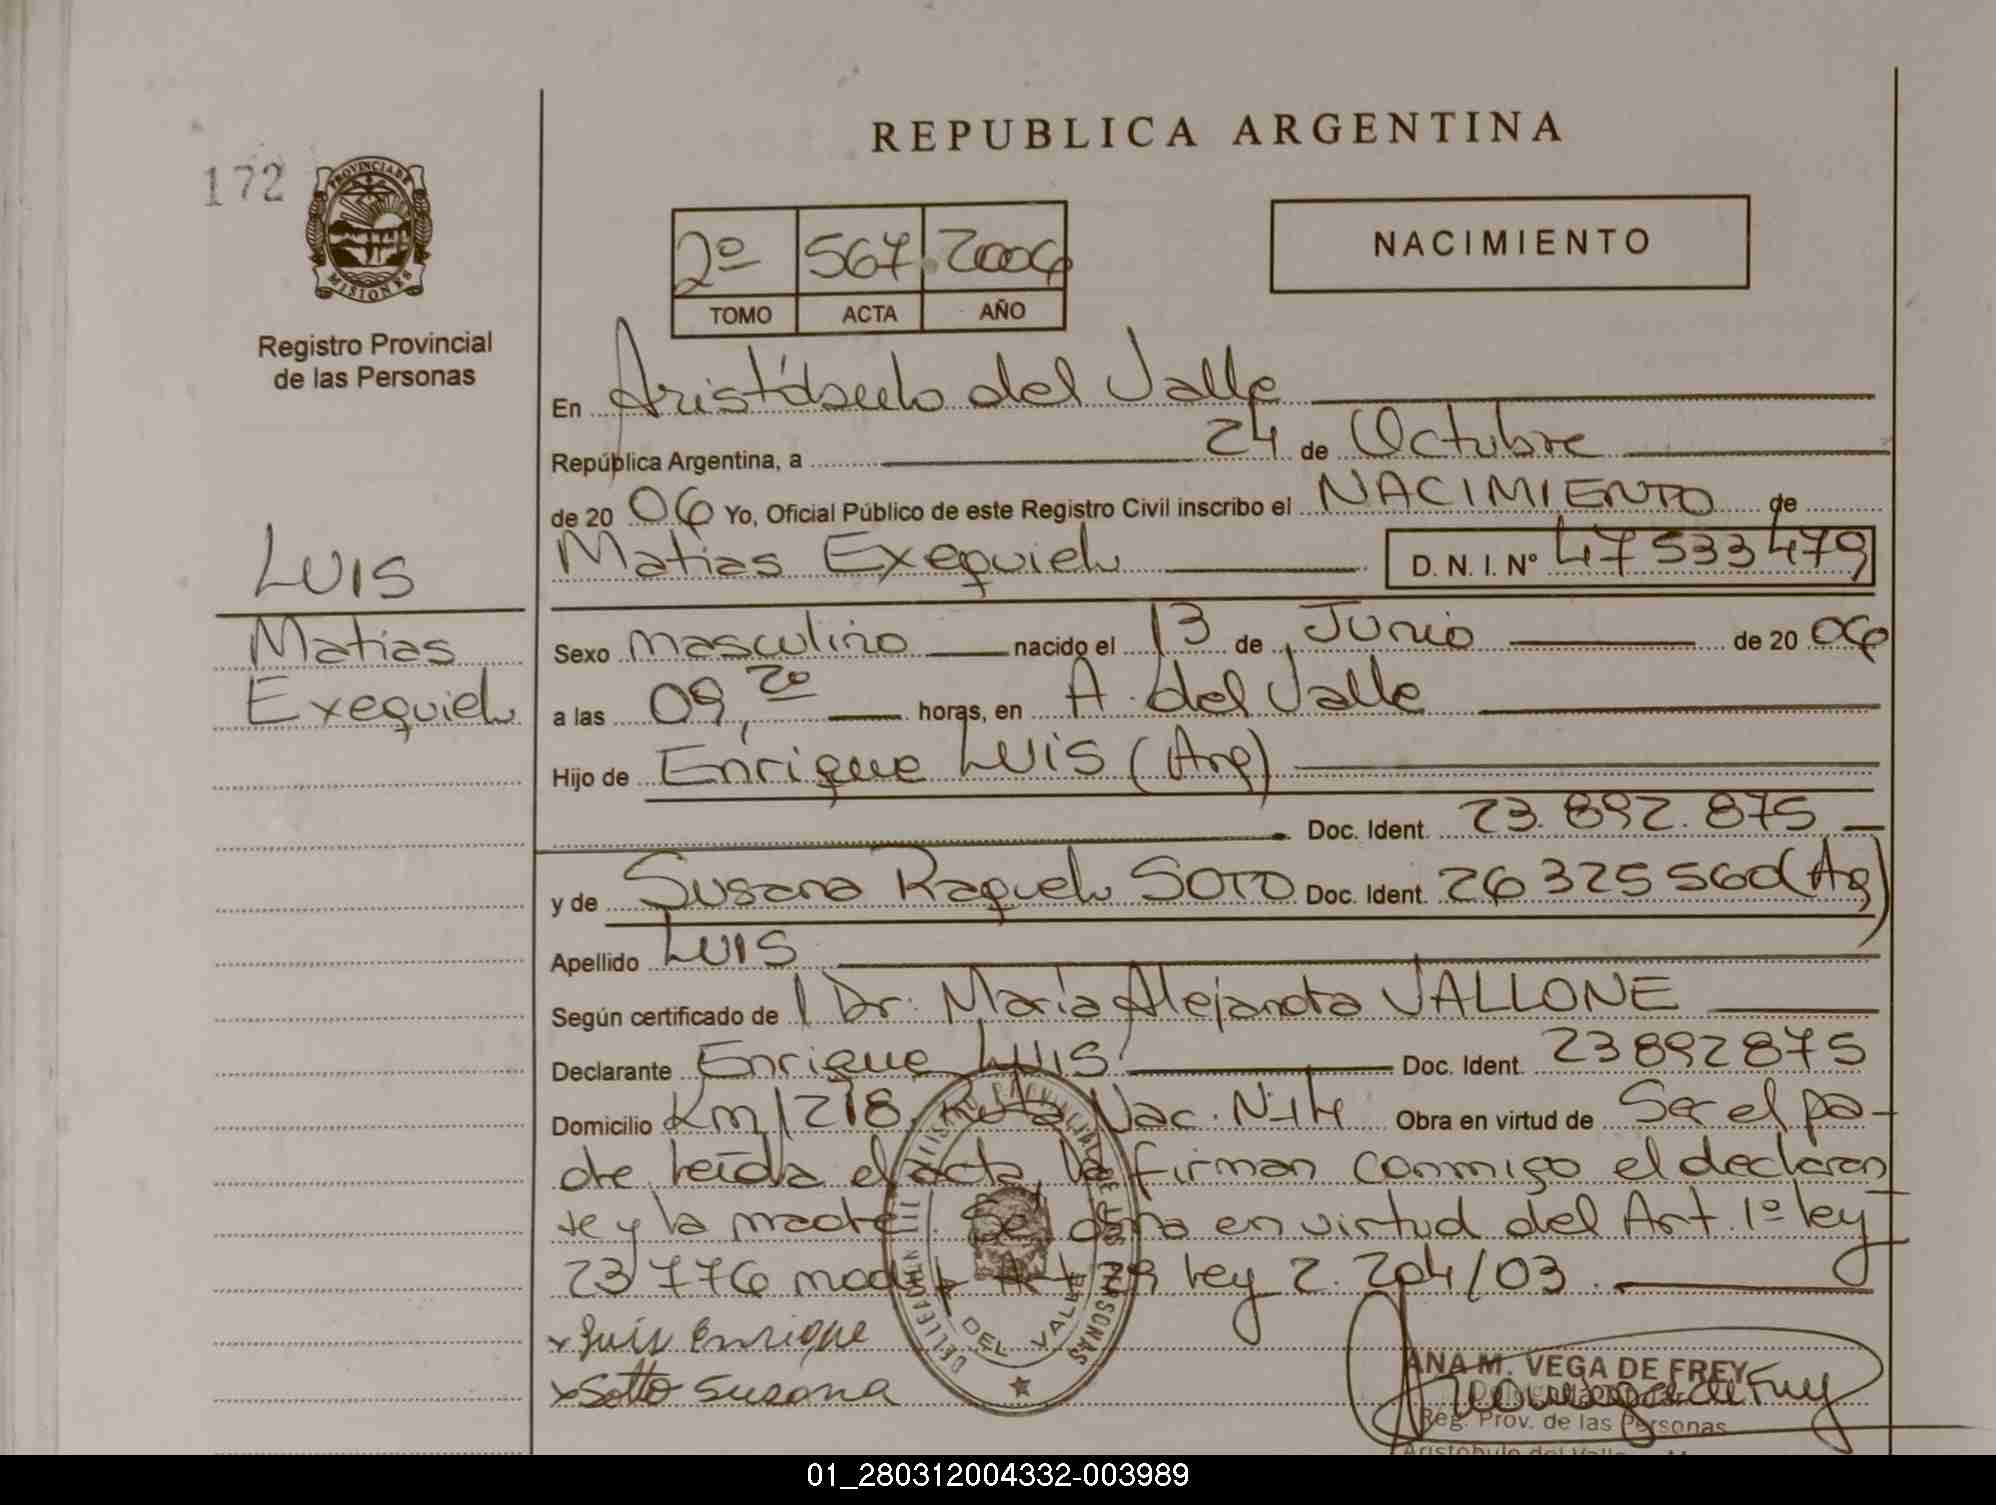 REPUBLICA ARGENTINA
172
PROVINCIA DE
MISIONES
Registro Provincial
de las Personas
2º 567 2006
TOMO ACTA AÑO
NACIMIENTO
En Aristóbulo del Valle
República Argentina, a 24 de Octubre
de 20 06 Yo, Oficial Público de este Registro Civil inscribo el NACIMIENTO de
Matias Exequiel D. N. I. Nº 47533479
LUIS
Matias
Exequiel
Sexo masculino nacido el 13 de Junio de 20 06
a las 09,20 horas, en A. del Valle
Hijo de Enrique LUIS (Arg)
Doc. Ident. 23.892.875
y de Susana Raquel SOTO Doc. Ident. 26325560 (Ag)
Apellido LUIS
Según certificado de Dr. María Alejandra VALLONE
Declarante Enrique LUIS Doc. Ident. 23892875
Domicilio Km 1218, Ruta Nac. Nº 14 Obra en virtud de Ser el pa-
dre leída el acta, la firman conmigo el declaran
te y la madre. Se obra en virtud del Art. 1º ley
23776 modif Art 29 ley 2.204/03.
x Luis Enrique
x Sotto Susana
DEL VALLE
ANA M. VEGA DE FREY
Reg. Prov. de las Personas
01_280312004332-003989